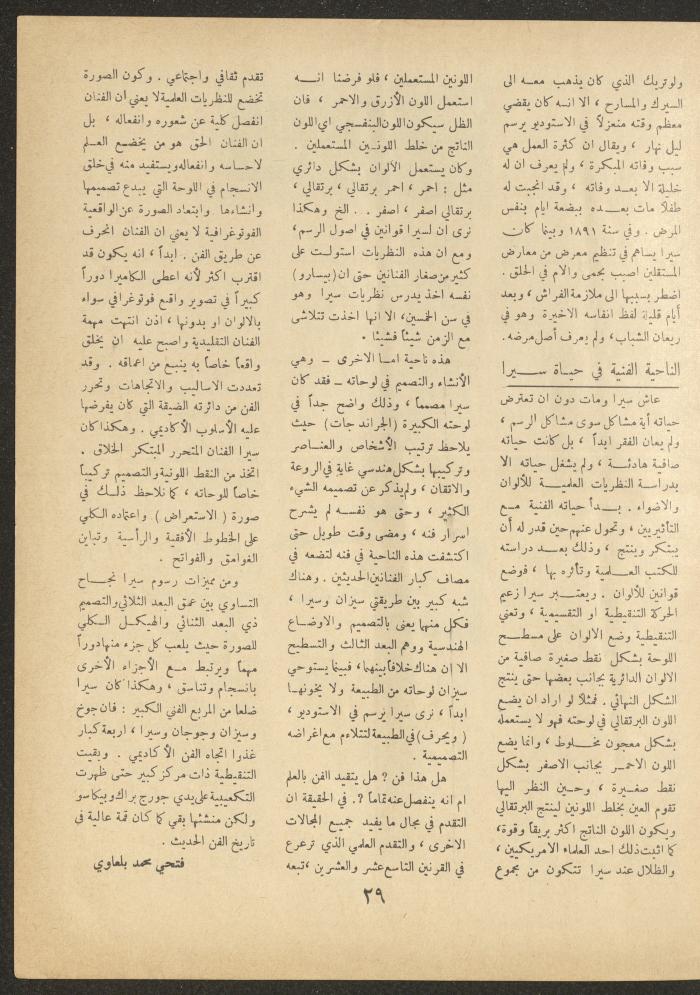 ولوتريك الذي كان يذهب معه الى
السيرك والمسارح ، الا انه كان يقضي
معظم وقته منعزلاً في الاستوديو يرسم
ليل نهار ، ويقال ان كثرة العمل هي
سبب وفاته المبكرة ، ولم يعرف ان له
خليلة الا بعد وفاته ، وقد انجبت له
طفلاً مات بعده ببضعة ايام بنفس
المرض . وفي سنة ١٨٩١ وبينما كان
سيرا يساهم في تنظيم معرض من معارض
المستقلين اصيب بحمى والام في الحلق .
اضطر بسببها الى ملازمة الفراش ، وبعد
أيام قليلة لفظ انفاسه الاخيرة وهو في
ريعان الشباب، ولم يعرف أصل مرضه.
الناحية الفنية في حياة سيرا
عاش سيرا ومات دون ان تعترض
حياته أية مشاكل سوى مشاكل الرسم ،
ولم يعان الفقر ابداً ، بل كانت حياته
صافية هادئة ، ولم يشغل حياته الا
بدراسة النظريات العلمية للألوان
والاضواء . بدأ حياته الفنية مع
التأثيريين ، وتحول عنهم حين قدر له أن
يبتكر وينتج ، وذلك بعد دراسته
للكتب العلمية وتأثره بها ، فوضع
قوانين للألوان . ويعتبر سيرا زعيم
الحركة التنقيطية او التقسيمية ، وتعني
التنقيطية وضع الالوان على مسطح
اللوحة بشكل نقط صغيرة صافية من
الالوان الدائرية بجانب بعضها حتى ينتج
الشكل النهائي . فمثلاً لو اراد ان يضع
اللون البرتقالي في لوحته فهو لا يستعمله
بشكل معجون مخلوط ، وانما يضع
اللون الاحمر بجانب الاصفر بشكل
نقط صغيرة ، وحين النظر اليها
تقوم العين بخلط اللونين لينتج البرتقالي
ويكون اللون الناتج اكثر بريقاً وقوة،
كما اثبت ذلك احد العلماء الامريكيين ،
والظلال عند سيرا تتكون من مجموع
اللونين المستعملين ، فلو فرضنا انه
استعمل اللون الأزرق والاحمر ، فان
الظل سيكون اللون البنفسجي اي اللون
الناتج من خلط اللونين المستعملين .
وكان يستعمل الألوان بشكل دائري
مثل : احمر ، احمر برتقالي ، برتقالي ،
برتقالي اصفر ، اصفر . . الخ وهكذا
نرى ان لسيرا قوانين في اصول الرسم،
ومع ان هذه النظريات استولت على
كثير من صغار الفنانين حتى ان (بيسارو)
نفسه اخذ يدرس نظريات سيرا وهو
في سن الخمسين، الا انها اخذت تتلاشى
مع الزمن شيئاً فشيئا .
هذه ناحية اما الاخرى ــ وهي
الأنشاء والتصميم في لوحاته ــ فقد كان
سيرا مصمماً ، وذلك واضح جداً في
لوحته الكبيرة (الجراند جات) حيث
يلاحظ ترتيب الأشخاص والعناصر
وتركيبها بشكل هندسي غاية في الروعة
والاتقان ، ولم يذكر عن تصميمه الشيء
الكثير ، وحتى هو نفسه لم يشرح
اسرار فنه ، ومضى وقت طويل حتى
اكتشفت هذه الناحية في فنه لتضعه في
مصاف كبار الفنانين الحديثين . وهناك
شبه كبير بين طريقتي سيزان وسيرا ،
فكل منهما يعنى بالتصميم والاوضاع
الهندسية ووهم البعد الثالث والتسطيح
الا ان هناك خلافاً بينهما، فبينما يستوحي
سيزان لوحاته من الطبيعة ولا يخونها
ابداً ، نرى سيرا يرسم في الاستوديو ،
( ويحرف) في الطبيعة لتتلاءم مع اغراضه
التصميمية .
هل هذا فن ? هل يتقيد الفن بالعلم
ام انه ينفصل عنه تماماً ?. في الحقيقة ان
التقدم في مجال ما يفيد جميع المجالات
الاخرى ، والتقدم العلمي الذي ترعرع
في القرنين التاسع عشر والعشرين ، تبعه
تقدم ثقافي واجتماعي . وكون الصورة
تخضع للنظريات العلمية لا يعني ان الفنان
انفصل كلية عن شعوره وانفعاله ، بل
ان الفنان الحق هو من يخضع العلم
لاحساسه وانفعاله ويستفيد منه في خلق
الانسجام في اللوحة التي يبدع تصميمها
وانشاءها وابتعاد الصورة عن الواقعية
الفوتوغرافية لا يعني ان الفنان انحرف
عن طريق الفن . ابداً ، انه يكون قد
اقترب اكثر لأنه اعطى الكاميرا دوراً
كبيراً في تصوير واقع فوتوغرافي سواء
بالالوان او بدونها ، اذن انتهت مهمة
الفنان التقليدية واصبح عليه ان يخلق
واقعاً خاصاً به ينبع من اعماقه . وقد
تعددت الاساليب والاتجاهات وتحرر
الفن من دائرته الضيقة التي كان يفرضها
عليه الأسلوب الأكاديمي . وهكذا كان
سيرا الفنان المتحرر المبتكر الخلاق .
اتخذ من النقط اللونية والتصميم تركيباً
خاصاً للوحاته ، كما نلاحظ ذلك في
صورة ( الاستعراض ) واعتماده الكلي
على الخطوط الأفقية والرأسية وتباين
الغوامق والفواتح .
ومن مميزات رسوم سيرا نجاح
التساوي بين عمق البعد الثلاثي والتصميم
ذي البعد الثنائي والهيكل الكلي
للصورة حيث يلعب كل جزء منها دوراً
مهماً ويرتبط مع الأجزاء الأخرى
بانسجام وتناسق ، وهكذا كان سيرا
ضلعا من المربع الفني الكبير : فان جوخ
وسيزان وجوجان وسيرا ، اربعة كبار
غذوا اتجاه الفن الأكاديمي . وبقيت
التنقيطية ذات مركز كبير حتى ظهرت
التكعيبية على يدي جورج براك وبيكاسو
ولكن منشئها بقي كما كان قمة عالية في
تاريخ الفن الحديث .
فتحي محمد بلعاوي
٢٩